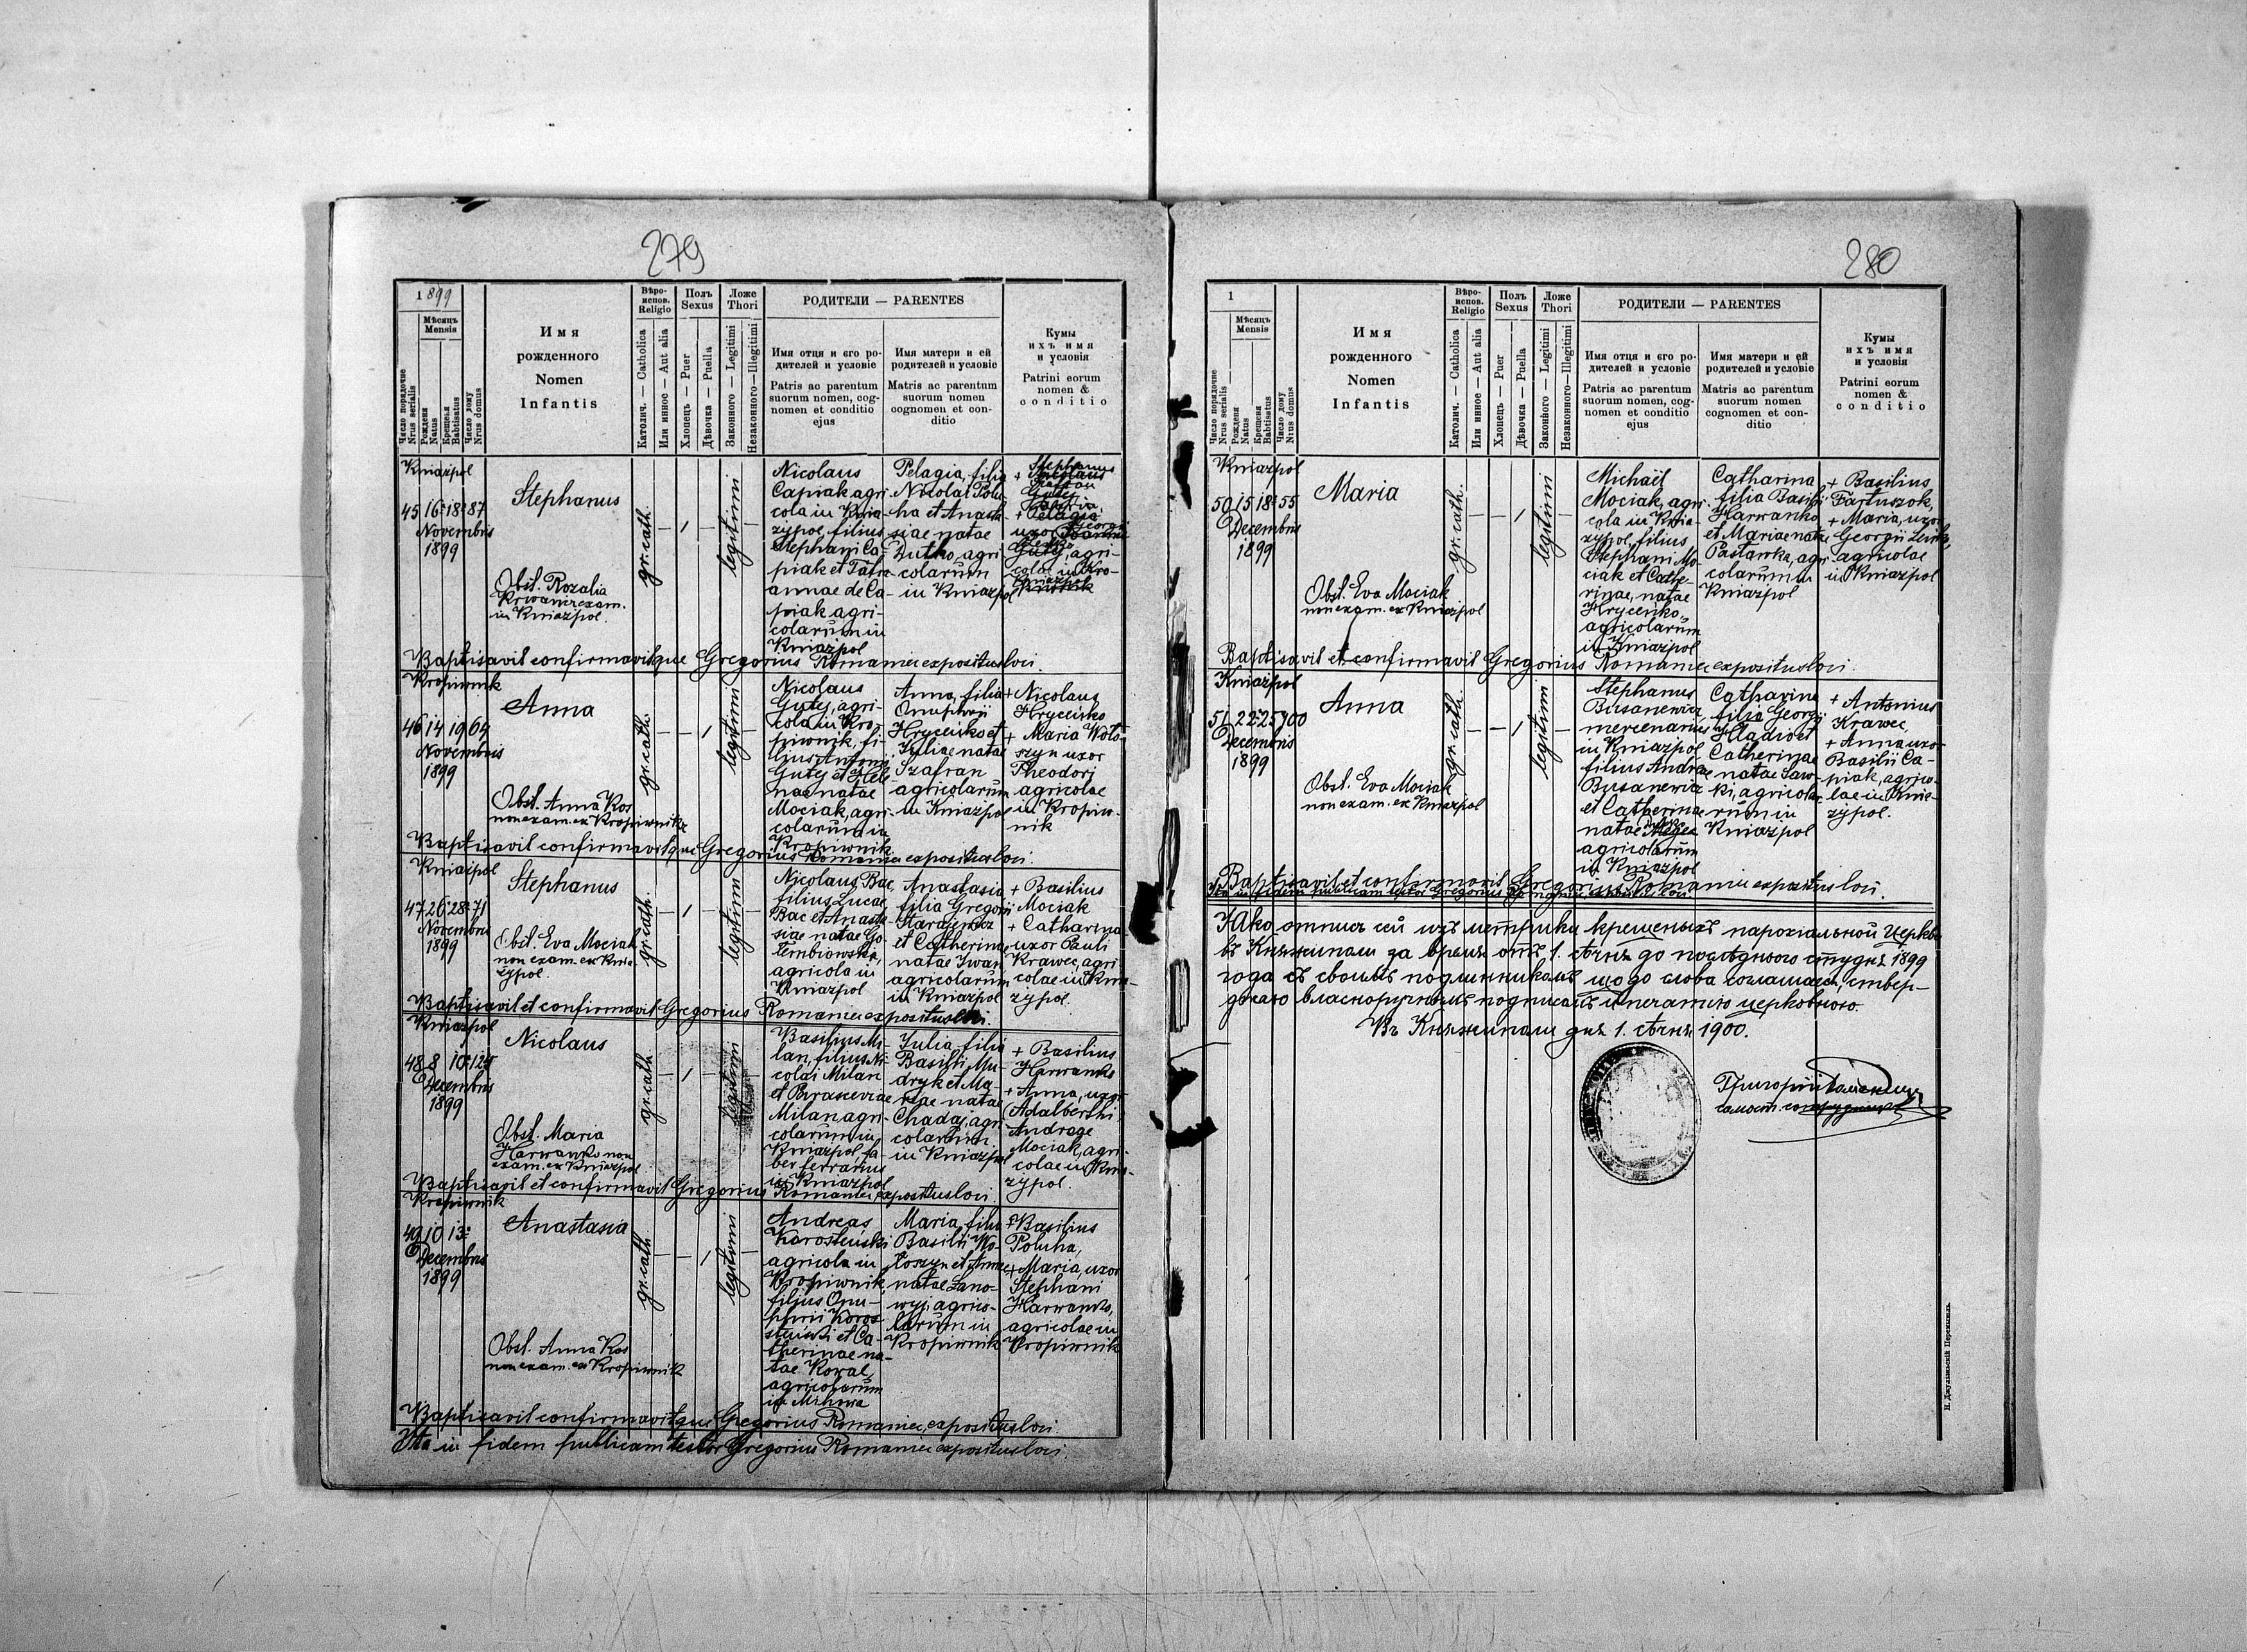 279
1899
Мѣсяцъ
Mensis
Число порядочне
Nrus serialis
Рожденя
Natus
Крещенья
Babtisatus
Число дому
Nrus domus
Имя
рожденного
Nomen
Infantis
Вѣро-
испов.
Religio
Католич. — Catholica
Или инное — Aut alia
Полъ
Sexus
Хлопецъ — Puer
Дѣвочка — Puella
Ложе
Thori
Законного — Legitimi
Незаконного — Illegitimi
РОДИТЕЛИ — PARENTES
Имя отця и єго ро-
дителей и условіе
Patris ac parentum
suorum nomen, cog-
nomen et conditio
ejus
Имя матери и ей
родителей и условіе
Matris ac parentum
suorum nomen
cognomen et con-
ditio
Кумы
ихъ имя
и условія
Patrini eorum
nomen &
conditio
Kniazpol
45 16 18 87
Novembris
1899
Stephanus
Obst. Rozalia
in Kniazpol.
gr. cath.
legitimi
Nicolaus
Capiak agri-
cola in Knia-
zypol, filius
Stephani Ca-
piak et Tati-
annae de Ca-
piak agri-
colarum in
Kniazpol
Pelagia, filia
Nicolai Polu-
ha et Anasta-
siae natae
Dutko, agri-
colarum
in Kniazpol
Baptisavit confirmavitque Gregorius Romaniec expositus loci.
Kropiwnik
46 14 19 64
Novembris
1899
Anna
Obst. Anna Kos
non exam. ex Kropiwnik
gr. cath.
legitimi
Nicolaus
Gutej, agri-
cola in Kro-
piwnik, fi-
lius Antonii
Gutej et Hele-
nae natae
Mociak, agri-
colarum in
Kropiwnik
Anna, filia
Onuphrji
Hrycenko et
Juliae natae
Szafran
agricolarum
in Kniazpol
+ Nicolaus
Hrycenko
+ Maria Woło-
szyn uxor
Theodori
agricolae
in Kropiw-
nik
Baptisavit confirmavitque Gregorius Romaniec expositus loci.
Kniazpol
47 26 28 71
Novembris
1899
Stephanus
Obst. Eva Mociak
non exam. ex Knia-
zypol.
gr. cath.
legitimi
Nicolaus Bac
filius Lucae
Bac et Anasta-
siae natae Go-
łembiowska,
agricola in
Kniazpol
Anastasia
filia Gregorii
et Catherinae
natae Iwan
agricolarum
in Kniazpol
+ Basilius
Mociak
+ Catharina
uxor Pauli
Krawec, agri-
colae in Knia-
zypol.
Baptisavit et confirmavit Gregorius Romaniec expositus loci.
Kniazpol
48 8 10 124
Decembris
1899
Nicolaus
Obst. Maria
Harwanko non
exam. ex Kniazpol
gr. cath.
legitimi
Basilius Mi-
lan, filius Ni-
colai Milan
et Paraseviae
Milan agri-
colarum in
Kniazpol, fa-
ber ferrarius
in Kniazpol
Julia filia
Basilii Mu-
dryk et Ma-
riae natae
Chadaj, agri-
colarum
in Kniazpol
+ Basilius
Harwanko
+ Anna, uxor
Andreae
Mociak, agri-
colae in Knia-
zypol.
Baptisavit et confirmavit Gregorius Romaniec expositus loci.
Kropiwnik
49 10 13
Decembris
1899
Anastasia
Obst. Anna Kos
non exam. ex Kropiwnik
gr. cath.
legitimi
Andreas
Karosteński
agricola in
Kropiwnik,
filius Onu-
phrii Koros-
teński et Ca-
therinae na-
tae Kowal,
agricolarum
in
Maria, filia
Basilii Wo-
łoszyn et Annae
natae Łano-
wyj, agrico-
larum in
Kropiwnik
+ Basilius
Poluha,
+ Maria, uxor
Stephani
Harwanko,
agricolae in
Kropiwnik
Baptisavit confirmavitque Gregorius Romaniec, expositus loci
Ita in fidem publicam testor Gregorius Romaniec expositus loci.
280
1
Мѣсяцъ
Mensis
Число порядочне
Nrus serialis
Рожденя
Natus
Крещенья
Babtisatus
Число дому
Nrus domus
Имя
рожденного
Nomen
Infantis
Вѣро-
испов.
Religio
Католич. — Catholica
Или инное — Aut alia
Полъ
Sexus
Хлопецъ — Puer
Дѣвочка — Puella
Ложе
Thori
Законного — Legitimi
Незаконного — Illegitimi
РОДИТЕЛИ — PARENTES
Имя отця и єго ро-
дителей и условіе
Patris ac parentum
suorum nomen, cog-
nomen et conditio
ejus
Имя матери и ей
родителей и условіе
Matris ac parentum
suorum nomen
cognomen et con-
ditio
Кумы
ихъ имя
и условія
Patrini eorum
nomen &
conditio
Kniazpol
50 15 18 55
Decembris
1899
Maria
Obst. Eva Mociak
non exam. ex Kniazpol
gr. cath.
legitimi
Michaël
Mociak, agri-
cola in Knia-
zypol, filius
Stephani Mo-
ciak et Cathe-
rinae, natae
Hrycenko,
agricolarum
in Kniazpol
Catharina
filia Basilii
Harwanko
et Mariae natae
Pastawka, agri-
colarum in
Kniazpol
+ Basilius
Fartuszok,
+ Maria, uxor
Georgii
agricolae
in Kniazpol
Baptisavit et confirmavit Gregorius Romaniec expositus loci.
Kniazpol
51 22 25 100
Decembris
1899
Anna
Obst. Eva Mociak
non exam. ex Kniazpol
gr. cath.
legitimi
Stephanus
Busanewicz,
mercenarius
in Kniazpol
filius Andreae
Busanewicz
et Catherinae
natae
agricolarum
in Kniazpol
Catharina
filia Georgij
Hladio et
Catherinae
natae Saw-
ki, agricola-
rum in
Kniazpol
+ Antonius
Krawec,
+ Anna uxor
Basilii Ca-
piak, agrico-
lae in Knia-
zypol.
Baptisavit et confirmavit Gregorius Romaniec expositus loci.
Яко отпись сей изъ метрики крещеныхъ парохіальной церкви
въ Княжполи за время отъ 1. сѣчня до послѣднього студня 1899
года съ своимъ подлинникомъ що до слова солашаєся, ствер-
джаю власноручнымъ подписомъ и печатію церковною.
Въ Княжполи дня 1. сѣчня 1900.
Григорій Романецъ
самост. сотрудникъ